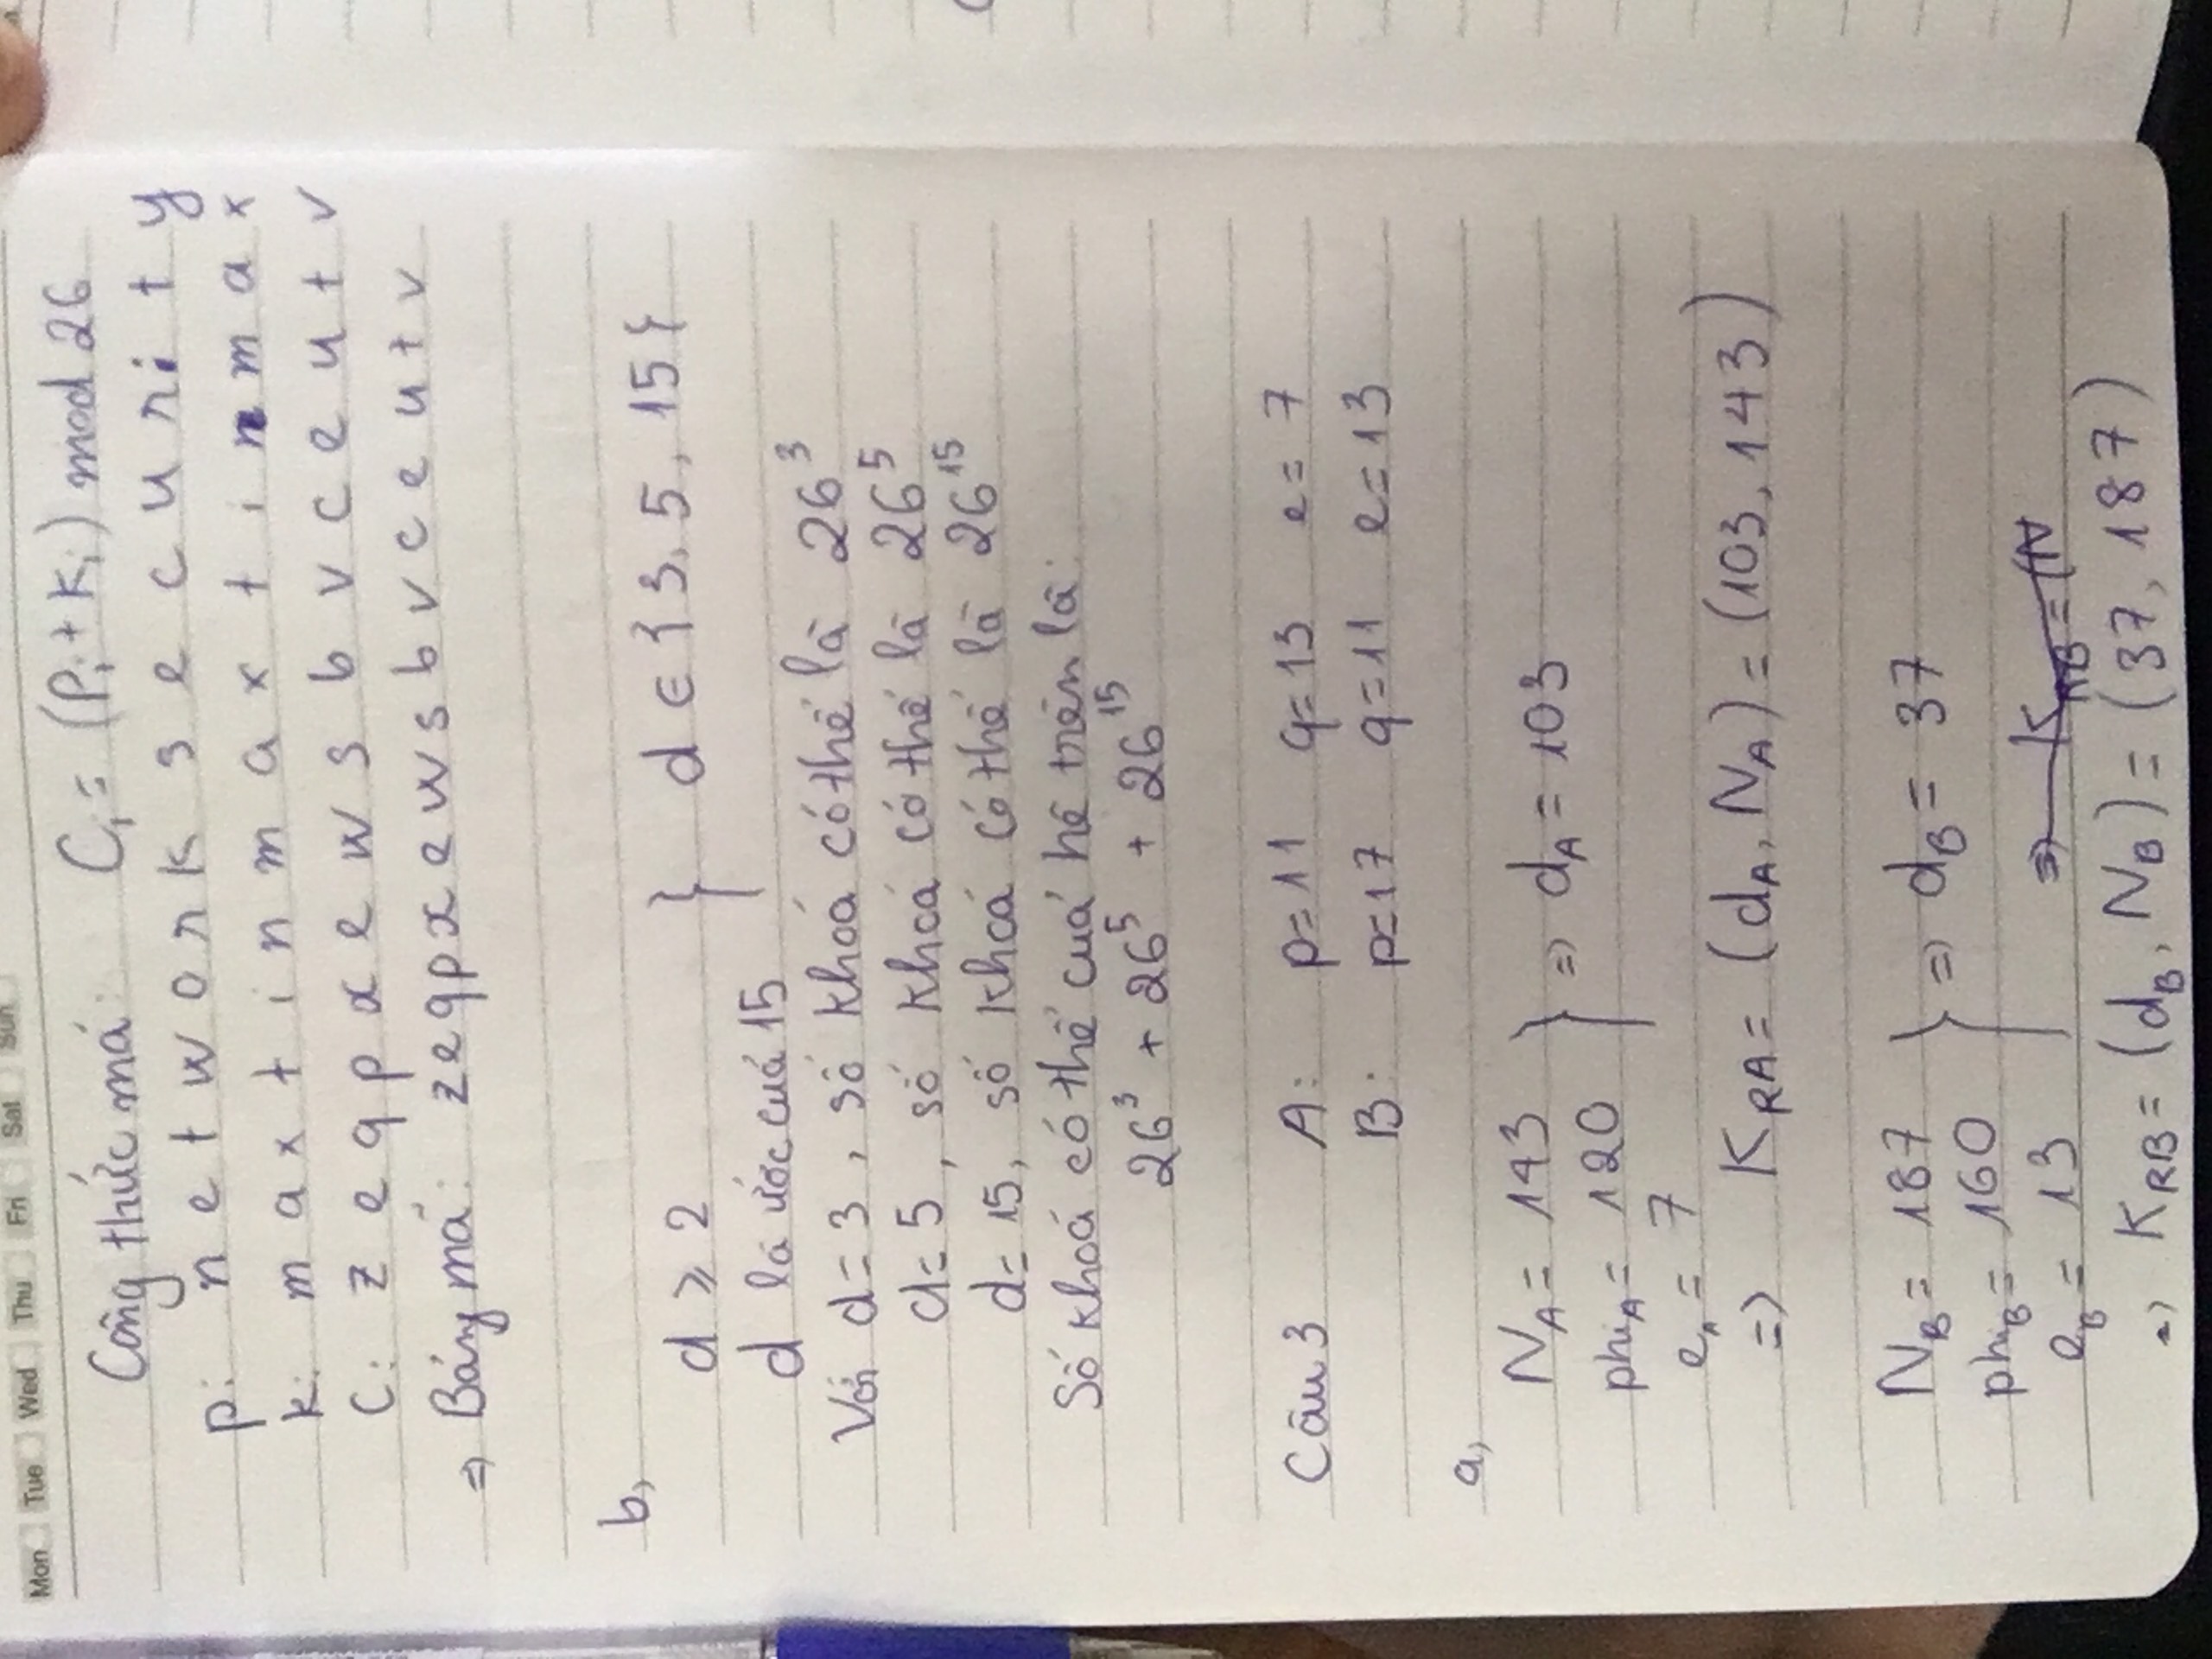 Mon Tue Wed Thu Fri Sat Sun
Công thức mã: Cᵢ = (Pᵢ + Kᵢ) mod 26
p: n e t w o r k s e c u r i t y
k: m a x t i n m a x t i n m a x
C: z e q p x e w s b v c e u t v
=> Bảng mã: z e q p x e w s b v c e u t v
b,
d ⩾ 2 } d ∈ {3, 5, 15}
d là ước của 15
Với d = 3, số khoá có thể là 26³
d = 5, số khoá có thể là 26⁵
d = 15, số khoá có thể là 26¹⁵
Số khoá có thể của hệ trên là:
26³ + 26⁵ + 26¹⁵
Câu 3 A: p=11 q=13 e=7
B: p=17 q=11 e=13
a,
N_A = 143 } => d_A = 103
phi_A = 120
e_A = 7
=> K_RA = (d_A, N_A) = (103, 143)
N_B = 187 } => d_B = 37
phi_B = 160
=> K_RB = (N
e_B = 13
=> K_RB = (d_B, N_B) = (37, 187)